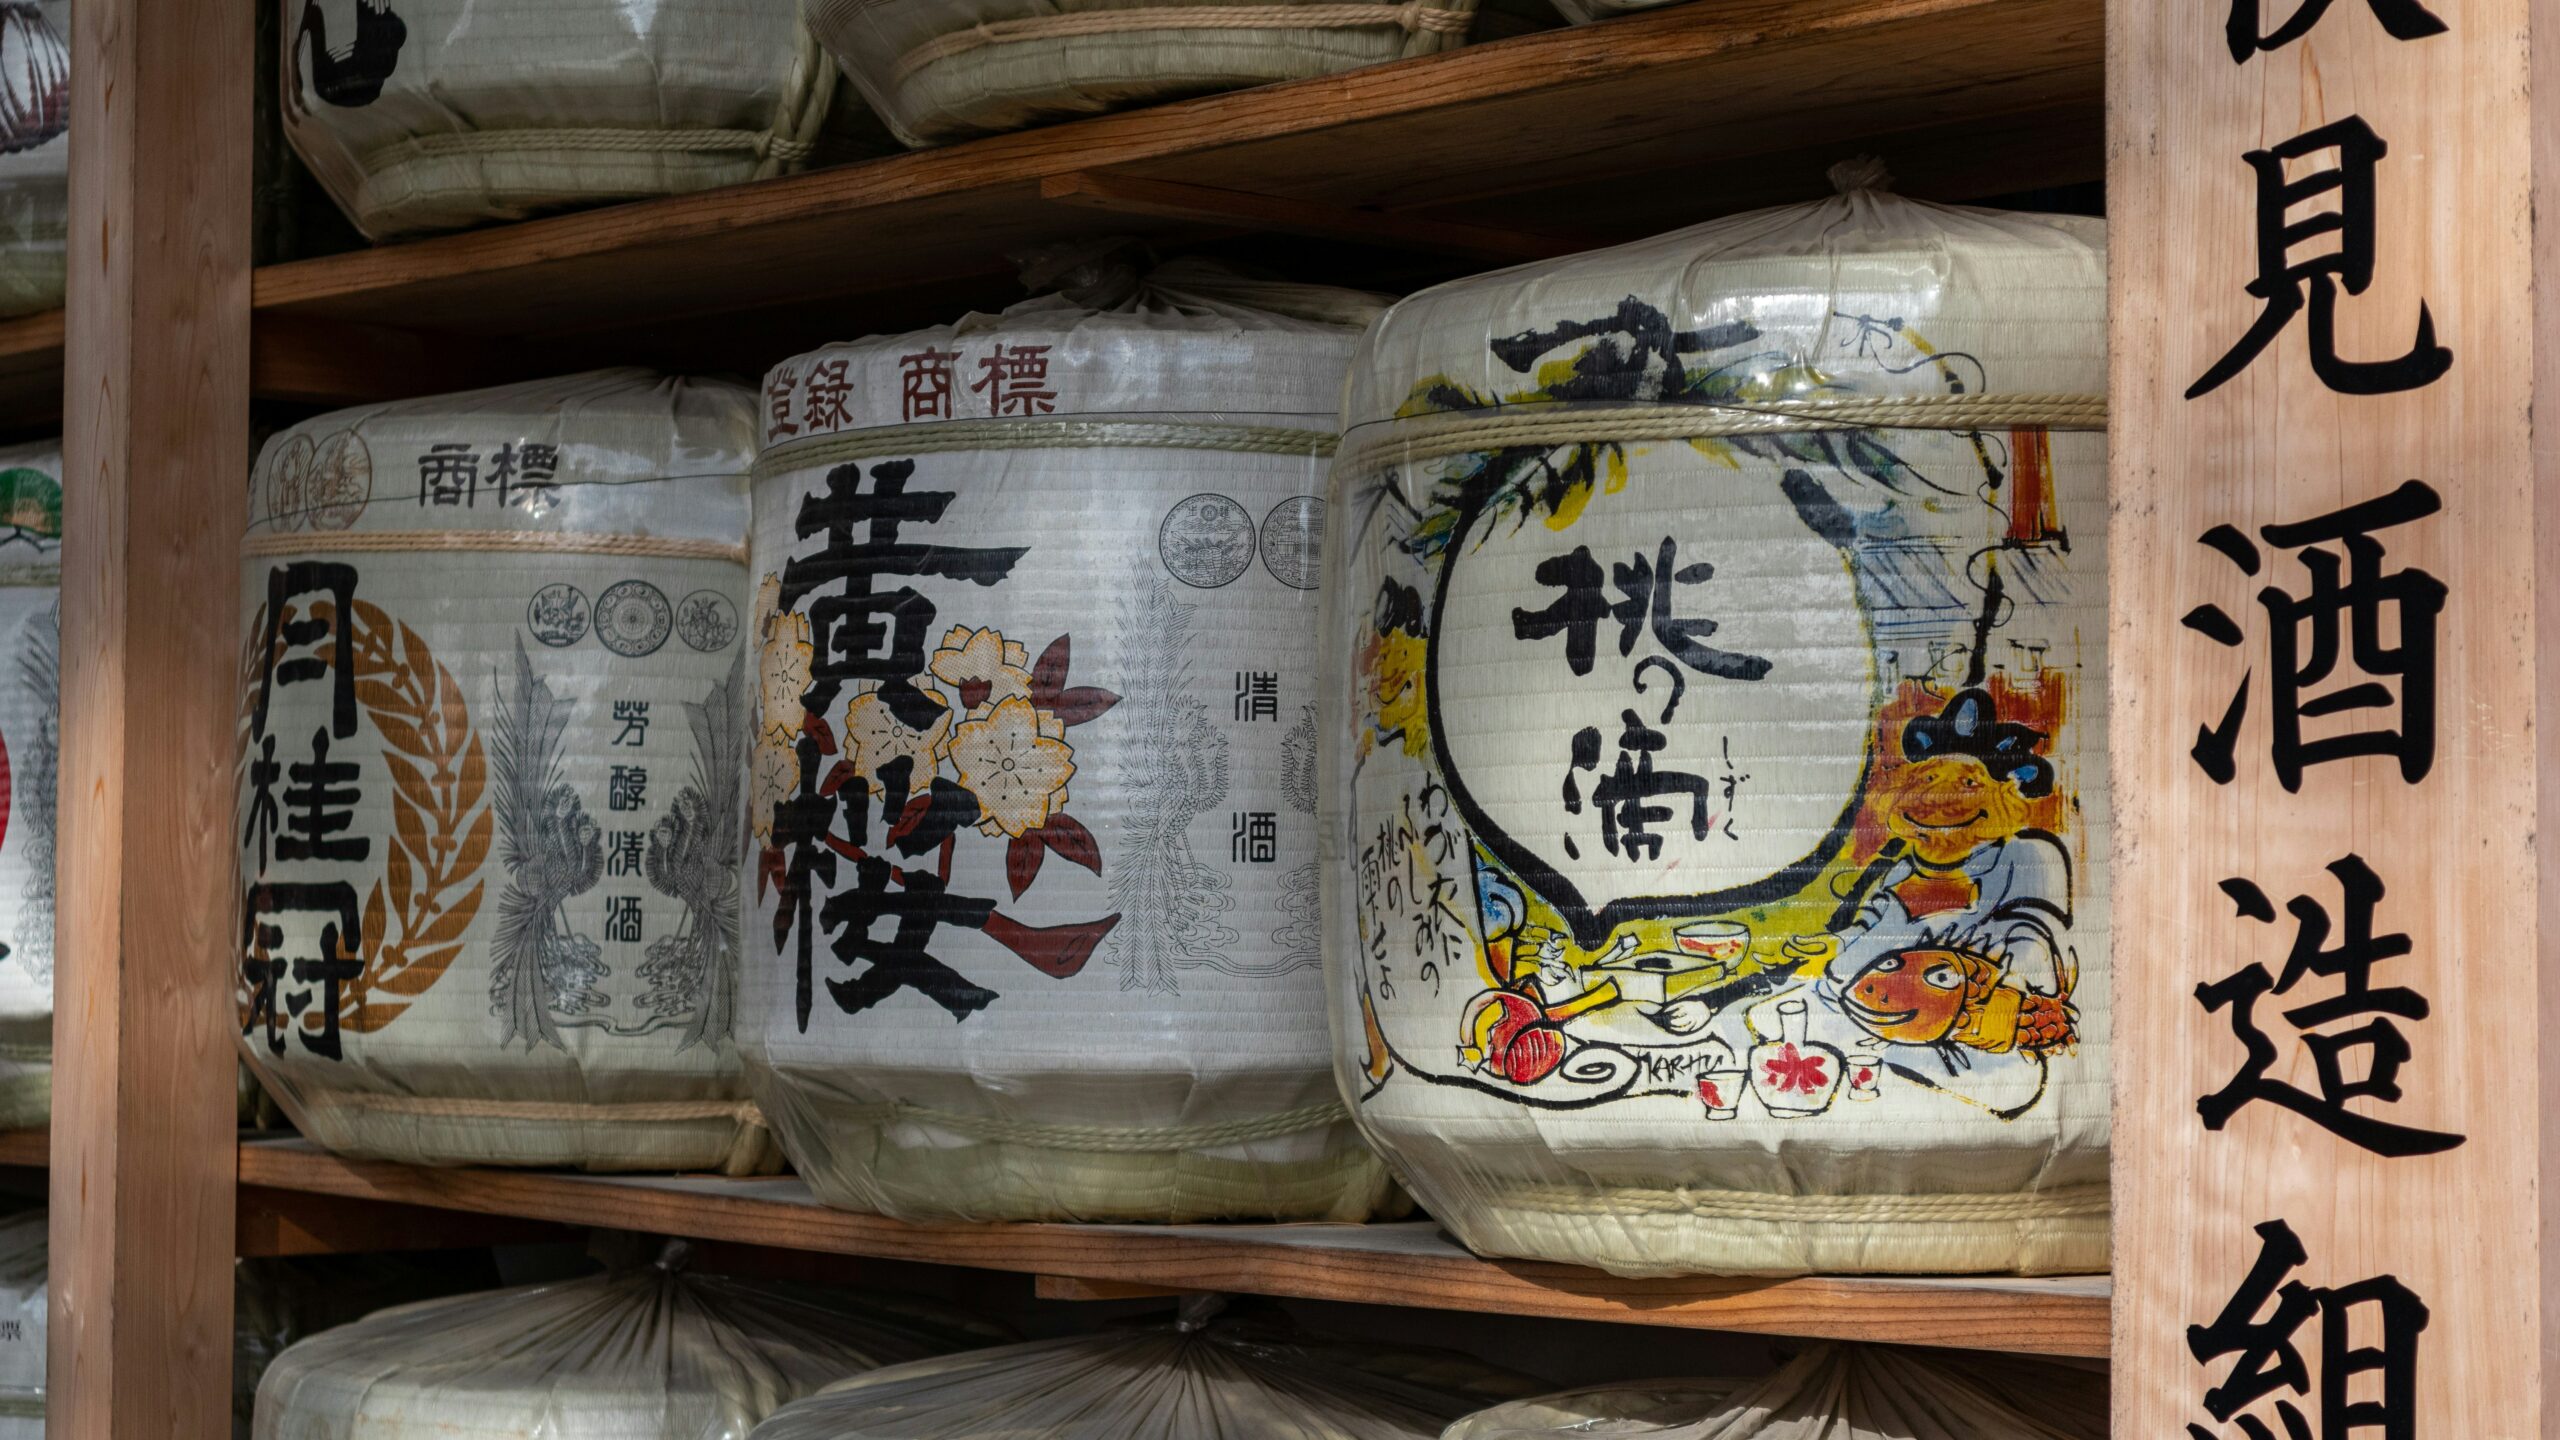 商標
月桂冠
芳醇清酒
登録 商標
黄桜
清酒
桃の滴
しずく
わが衣に
ふしみの
桃の
雫せよ
見酒造組